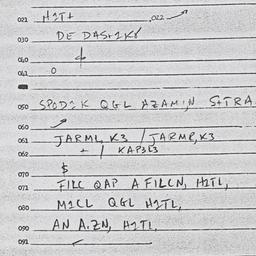 021 H2T+ 022
030 DE DAS+2K8
040
041 0
050 SPOD2K QGL AZAM,N S+TRA
060
061 JARML, K3 / JARMP, K3
062 + / KAP3L3
070 $
071 FILC QAP A FILCN, H2TL,
080 M2CL QGL H2TL,
090 AN A.ZN, H2TL,
091